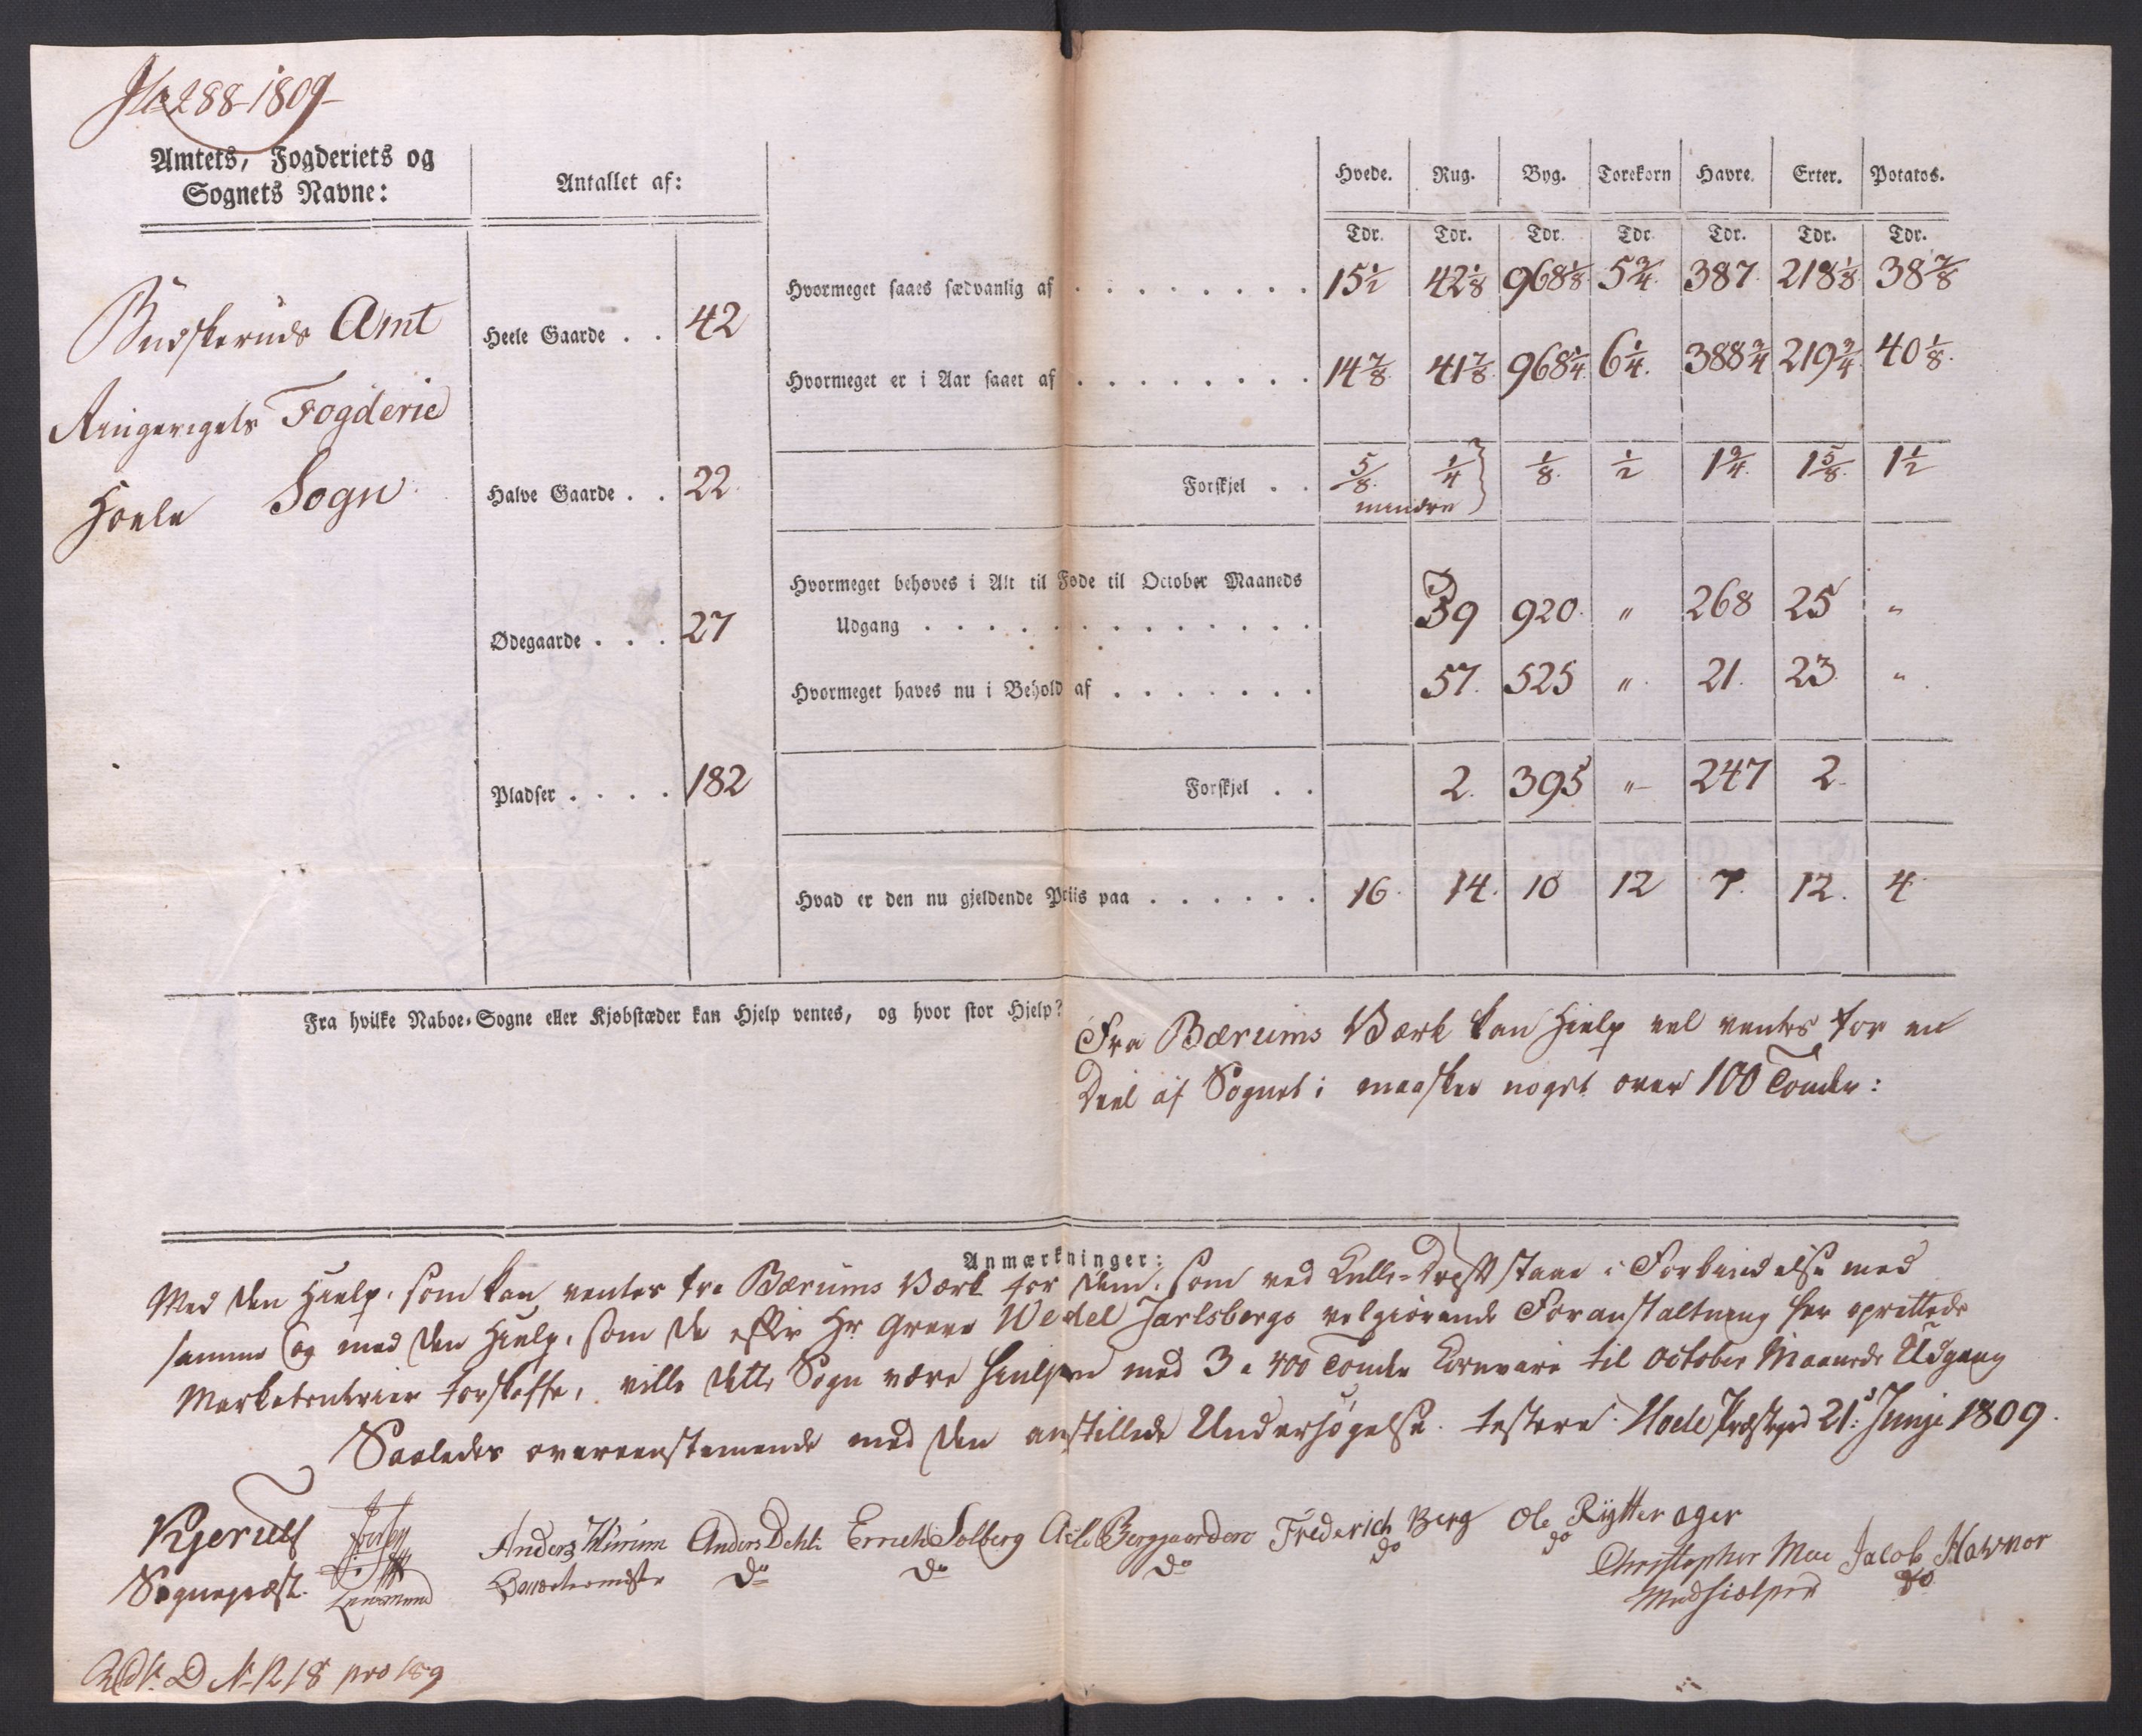 288-1809
Amtets, Fogderiets og
Sognets Navne:
Antallet af:
Hvede. Rug. Byg. Torekorn Havre. Erter. Potatos.
Tdr. Tdr. Tdr. Tdr. Tdr. Tdr. Tdr.
Hvormeget saaes sædvanlig af . . . . . . . . 15½ 42⅛ 968⅛ 5¾ 387 218⅛ 38⅞
Buskeruds Amt
Heele Gaarde . . 42
Hvormeget er i Aar saaet af . . . . . . . . 14⅞ 41⅞ 968¼ 6¼ 388¾ 219¾ 40⅛
Ringerigets Fogderie
Hoele Sogn
Halve Gaarde . . 22
Forskjel . . ⅝ ¼ } ⅛ ½ 1¾ 1⅝ 1½
mindre
Hvormeget behøves i Alt til Føde til October Maaneds
Udgang . . . . . . . . . . . . 59 920 „ 268 25 „
Ødegaarde . . . 27
Hvormeget haves nu i Behold af . . . . . . . 57 525 „ 21 23 „
Pladser . . . . 182
Forskjel . . 2 395 „ 247 2
Hvad er den nu gjeldende Priis paa . . . . . . 16 14 10 12 7 12 4
Fra hvilke Naboe-Sogne eller Kjøbstæder kan Hjelp ventes, og hvor stor Hjelp?
Fra Bærums Værk kan Hielp vel ventes for en
Deel af Sognet; maaskee noget over 100 Tønder:
Anmærkninger:
Med den Hielp, som kan ventes fra Bærums Værk for dem, som ved Kulle-Drift staae i Forbindelse med
samme og med den Hielp, som de efter Hr Greve Wedel Jarlsbergs velgiørende Foranstaltning her oprettede
Marketenterier forskaffe, ville dette Sogn være hiulpen med 3 a 400 Tønder Kornvare til October Maaneds Udgang
Saaledes overeenstemmende med den anstillede Undersøgelse testere. Hoele Præstegrd 21: Junji 1809.
Kjerulf
Sognepræst.
Lensmand
Anders Anders Dehli Errich Solberg Berggaarden Frederich Berg Ole Rytterager
Qvarteermester do do do do do
Christopher Moe Jacob Hawnor
Medhielper do
D No 1218 pro 1809